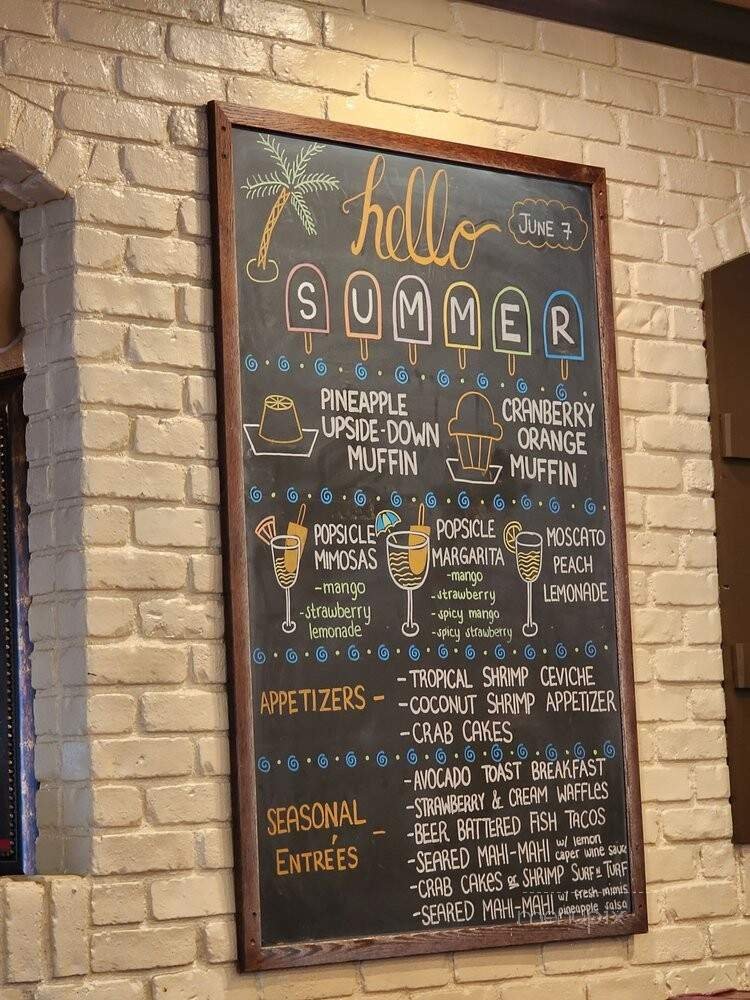 hello
JUNE 7
SUMMER
PINEAPPLE
UPSIDE-DOWN
MUFFIN
CRANBERRY
ORANGE
MUFFIN
POPSICLE
MIMOSAS
-mango
-strawberry
lemonade
POPSICLE
MARGARITA
-mango
-strawberry
-spicy mango
-spicy strawberry
MOSCATO
PEACH
LEMONADE
APPETIZERS -
-TROPICAL SHRIMP CEVICHE
-COCONUT SHRIMP APPETIZER
-CRAB CAKES
SEASONAL
ENTRÉES -
-AVOCADO TOAST BREAKFAST
-STRAWBERRY & CREAM WAFFLES
-BEER BATTERED FISH TACOS
-SEARED MAHI-MAHI w/ lemon
caper wine sauce
-CRAB CAKES or SHRIMP SURF N TURF
-SEARED MAHI-MAHI w/ fresh mimis
pineapple salsa
menupix